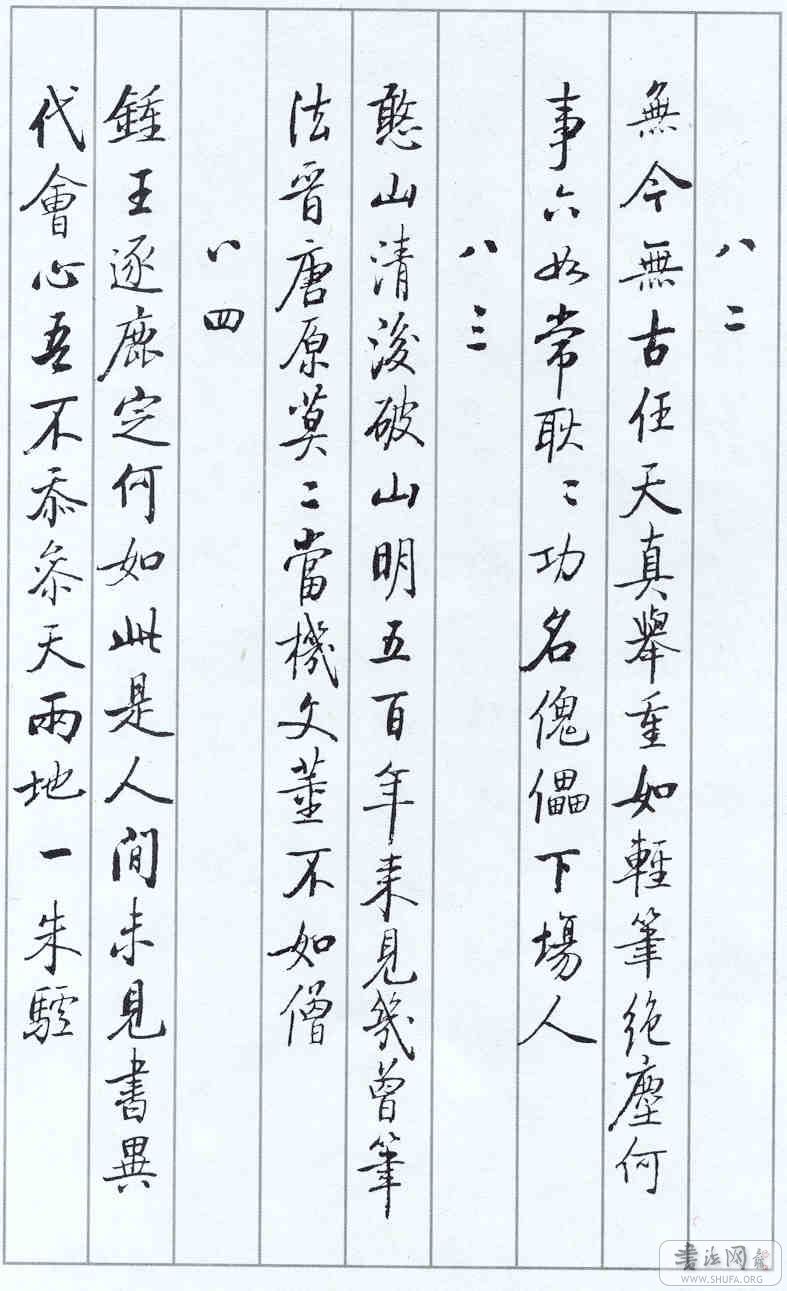 八二
無今無古任天真舉重如輕筆絶塵何
事六如常耿〻功名傀儡下場人
八三
憨山清後破山明五百年來見幾曾筆
法晋唐原莫二當機文董不如僧
八四
鍾王逐鹿定何如此是人間未見書異
代會心吾不忝參天兩地一朱驢
書法网
WWW.SHUFA.ORG